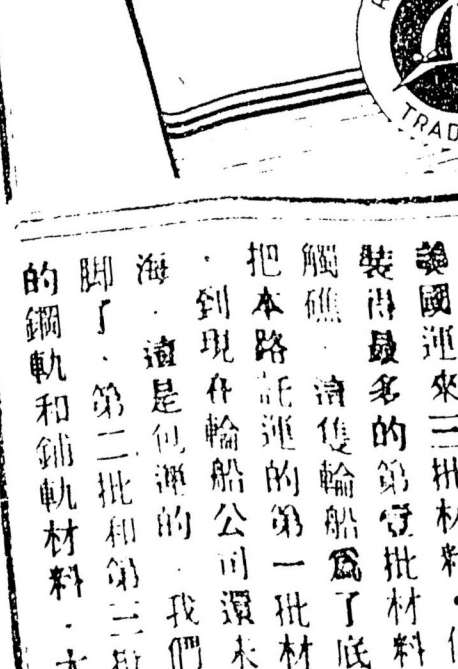 國運來三批材料.
裝得最多的第壹批材料
觸礁.這隻輪船爲了底
把本路託運的第一批材
.到現在輪船公司還未
海.這是運的.我們
脚了.第二批和第三批
的鋼軌和鋪軌材料.
TRAD